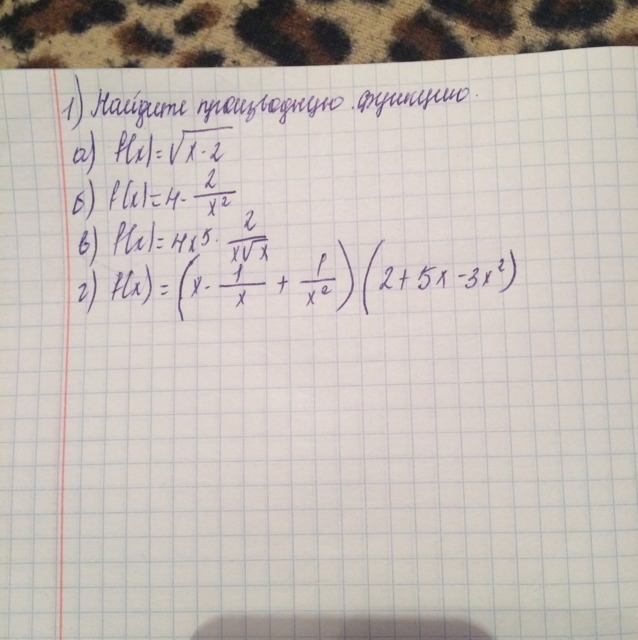 1) Найдите производную функцию.
а) f(x)=√x-2
б) f(x)=4-2/x²
в) f(x)=4x5-2/x√x
г) f(x)=(x-1/x+1/x²)(2+5x-3x²)